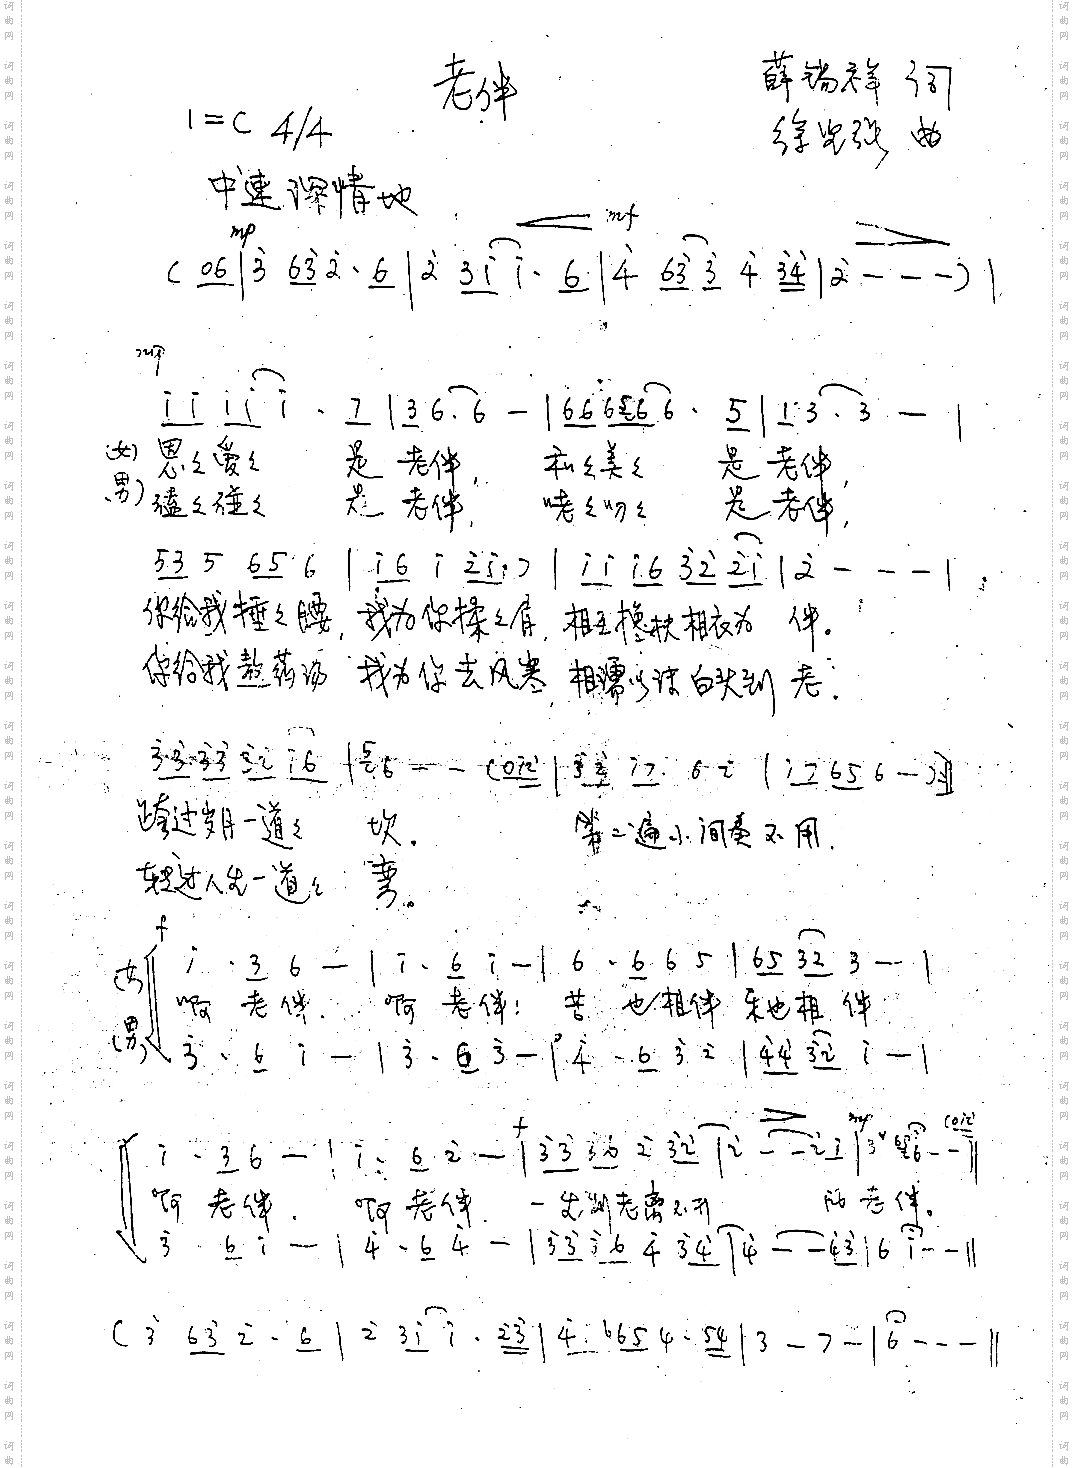 老伴
薛锡祥 词
1=C 4/4
曲
中速 深情地
mp mf
( 06 | 3 63 2 · 6 | 2 31 1 · 6 | 4 63 3 4 34 | 2 - - - ) |
mp
1 1 1 1 1 · 7 | 3 6 · 6 - | 6 6 6 5 6 6 · 5 | 1 3 · 3 - |
(女) 恩々爱々 是 老伴, 和々美々 是 老伴,
(男) 磕々碰々 是 老伴, 唠々叨々 是 老伴,
53 5 65 6 | 16 1 21 7 | 11 16 32 21 | 2 - - - |
你给我捶々腰, 我为你揉々肩, 相互搀扶相依为 伴。
你给我熬药汤 我为你去风寒, 相濡以沫白头到 老.
33 33 32 16 | 56 - - (012 | 33 17 · 6 2 | 17 65 6 - ) ‖
跨过岁月一道々 坎. 第二遍小间奏不用.
转过人生一道々 弯。
f
(女) 1 · 3 6 - | 1 · 6 1 - | 6 · 6 6 5 | 65 32 3 - - |
啊 老伴. 啊 老伴! 苦 也相伴 乐也相 伴
(男) 3 · 6 1 - | 3 · 6 3 - | 4 · 6 3 2 | 44 32 1 - |
f mp (012
1 · 3 6 - | 1 · 6 2 - | 33 36 2 32 | 2 - - 21 | 3 6 - - ‖
啊 老伴. 啊 老伴. 一生到老离不开 的 老伴。
3 · 6 1 - | 4 · 6 4 - | 33 36 4 34 | 4 - - 43 | 6 1 - - ‖
( 3 63 2 · 6 | 2 31 1 · 23 | 4 · 6654 · 54 | 3 - 7 - | 6 - - - ‖
词曲网